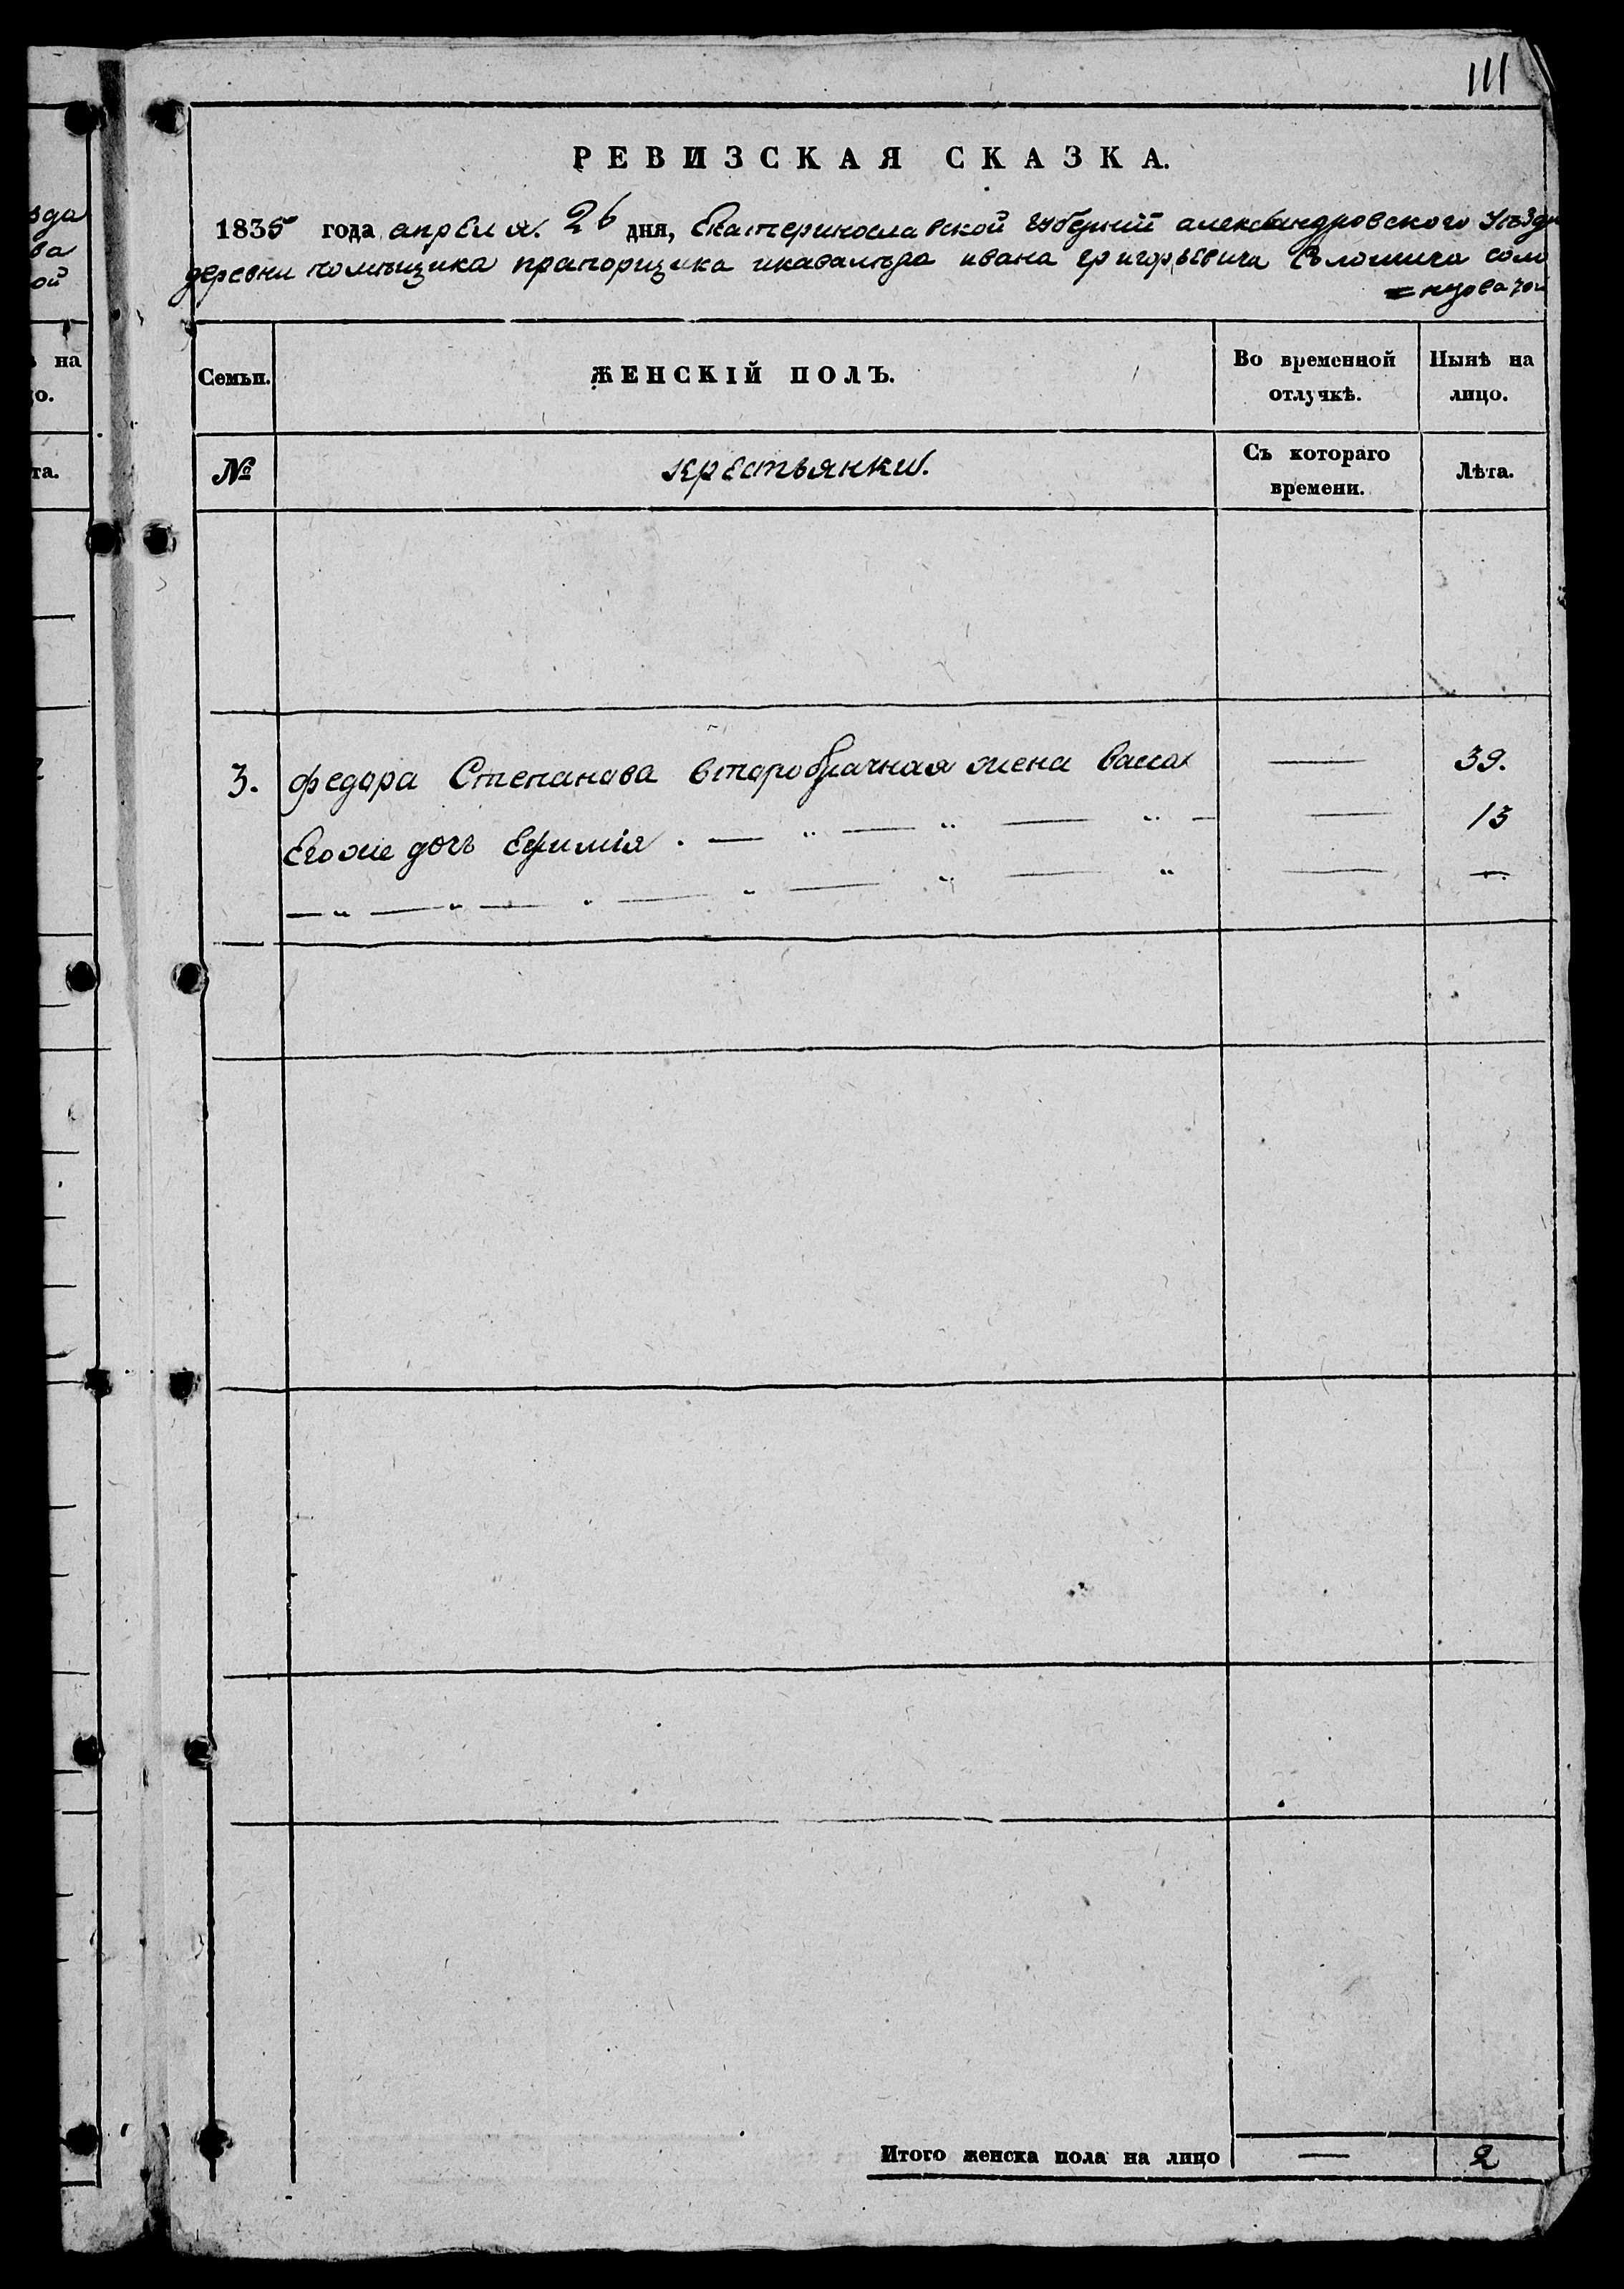 111
РЕВИЗСКАЯ СКАЗКА.
1835 года апреля. 26 дня, Екатеринославской губернии александровского Уѣзда
деревни помѣщика прапорщика икавалѣра ивана григорьевича соло
= нуоватой
Семьи.
ЖЕНСКІЙ ПОЛЪ.
Во временной отлучкѣ.
Нынѣ на лицо.
№
крестьянки.
Съ котораго времени.
Лѣта.
3. федора Степанова второбрачная жена васса — 39.
Егоже дочь Ефимія . — „ — „ — „ — — 13
— „ — „ — „ — „ — „ — „ — —
Итого женска пола на лицо — 2
зда
ва
ой
на
о.
та.